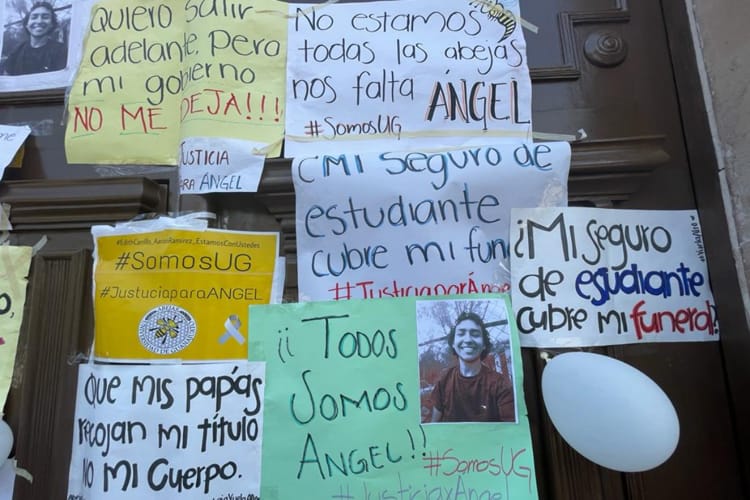 QUIERO SALIR
adelante, Pero
mi gobierno
NO ME DEJA!!!
JUSTICIA
PARA ÁNGEL
No estamos
todas las abejas
nos falta ÁNGEL
#SomosUG
¿MI Seguro de
estudiante
cubre mi
#JusticiaporÁngel
¿Mi seguro
de estudiante
cubre mi funeral?
#SomosUG
#JustuciaparaANGEL
¡¡TODOS
SOMOS
ANGEL!!
#SomosUG
#JusticiaxAngel
Que mis papás
recojan mi título
No mi cuerpo.